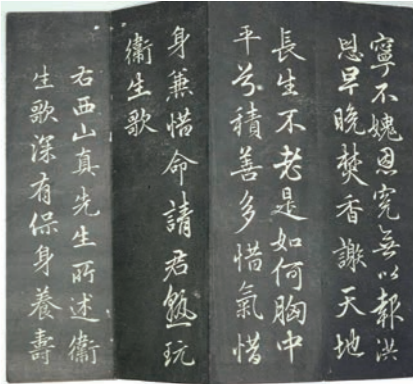 寧不媿思究無以報洪
恩早晚焚香謝天地
長生不老是如何胸中
平兮積善多惜氣惜
身兼惜命請君熟玩
衞生歌
右西山真先生所述衞
生歌深有保身養壽